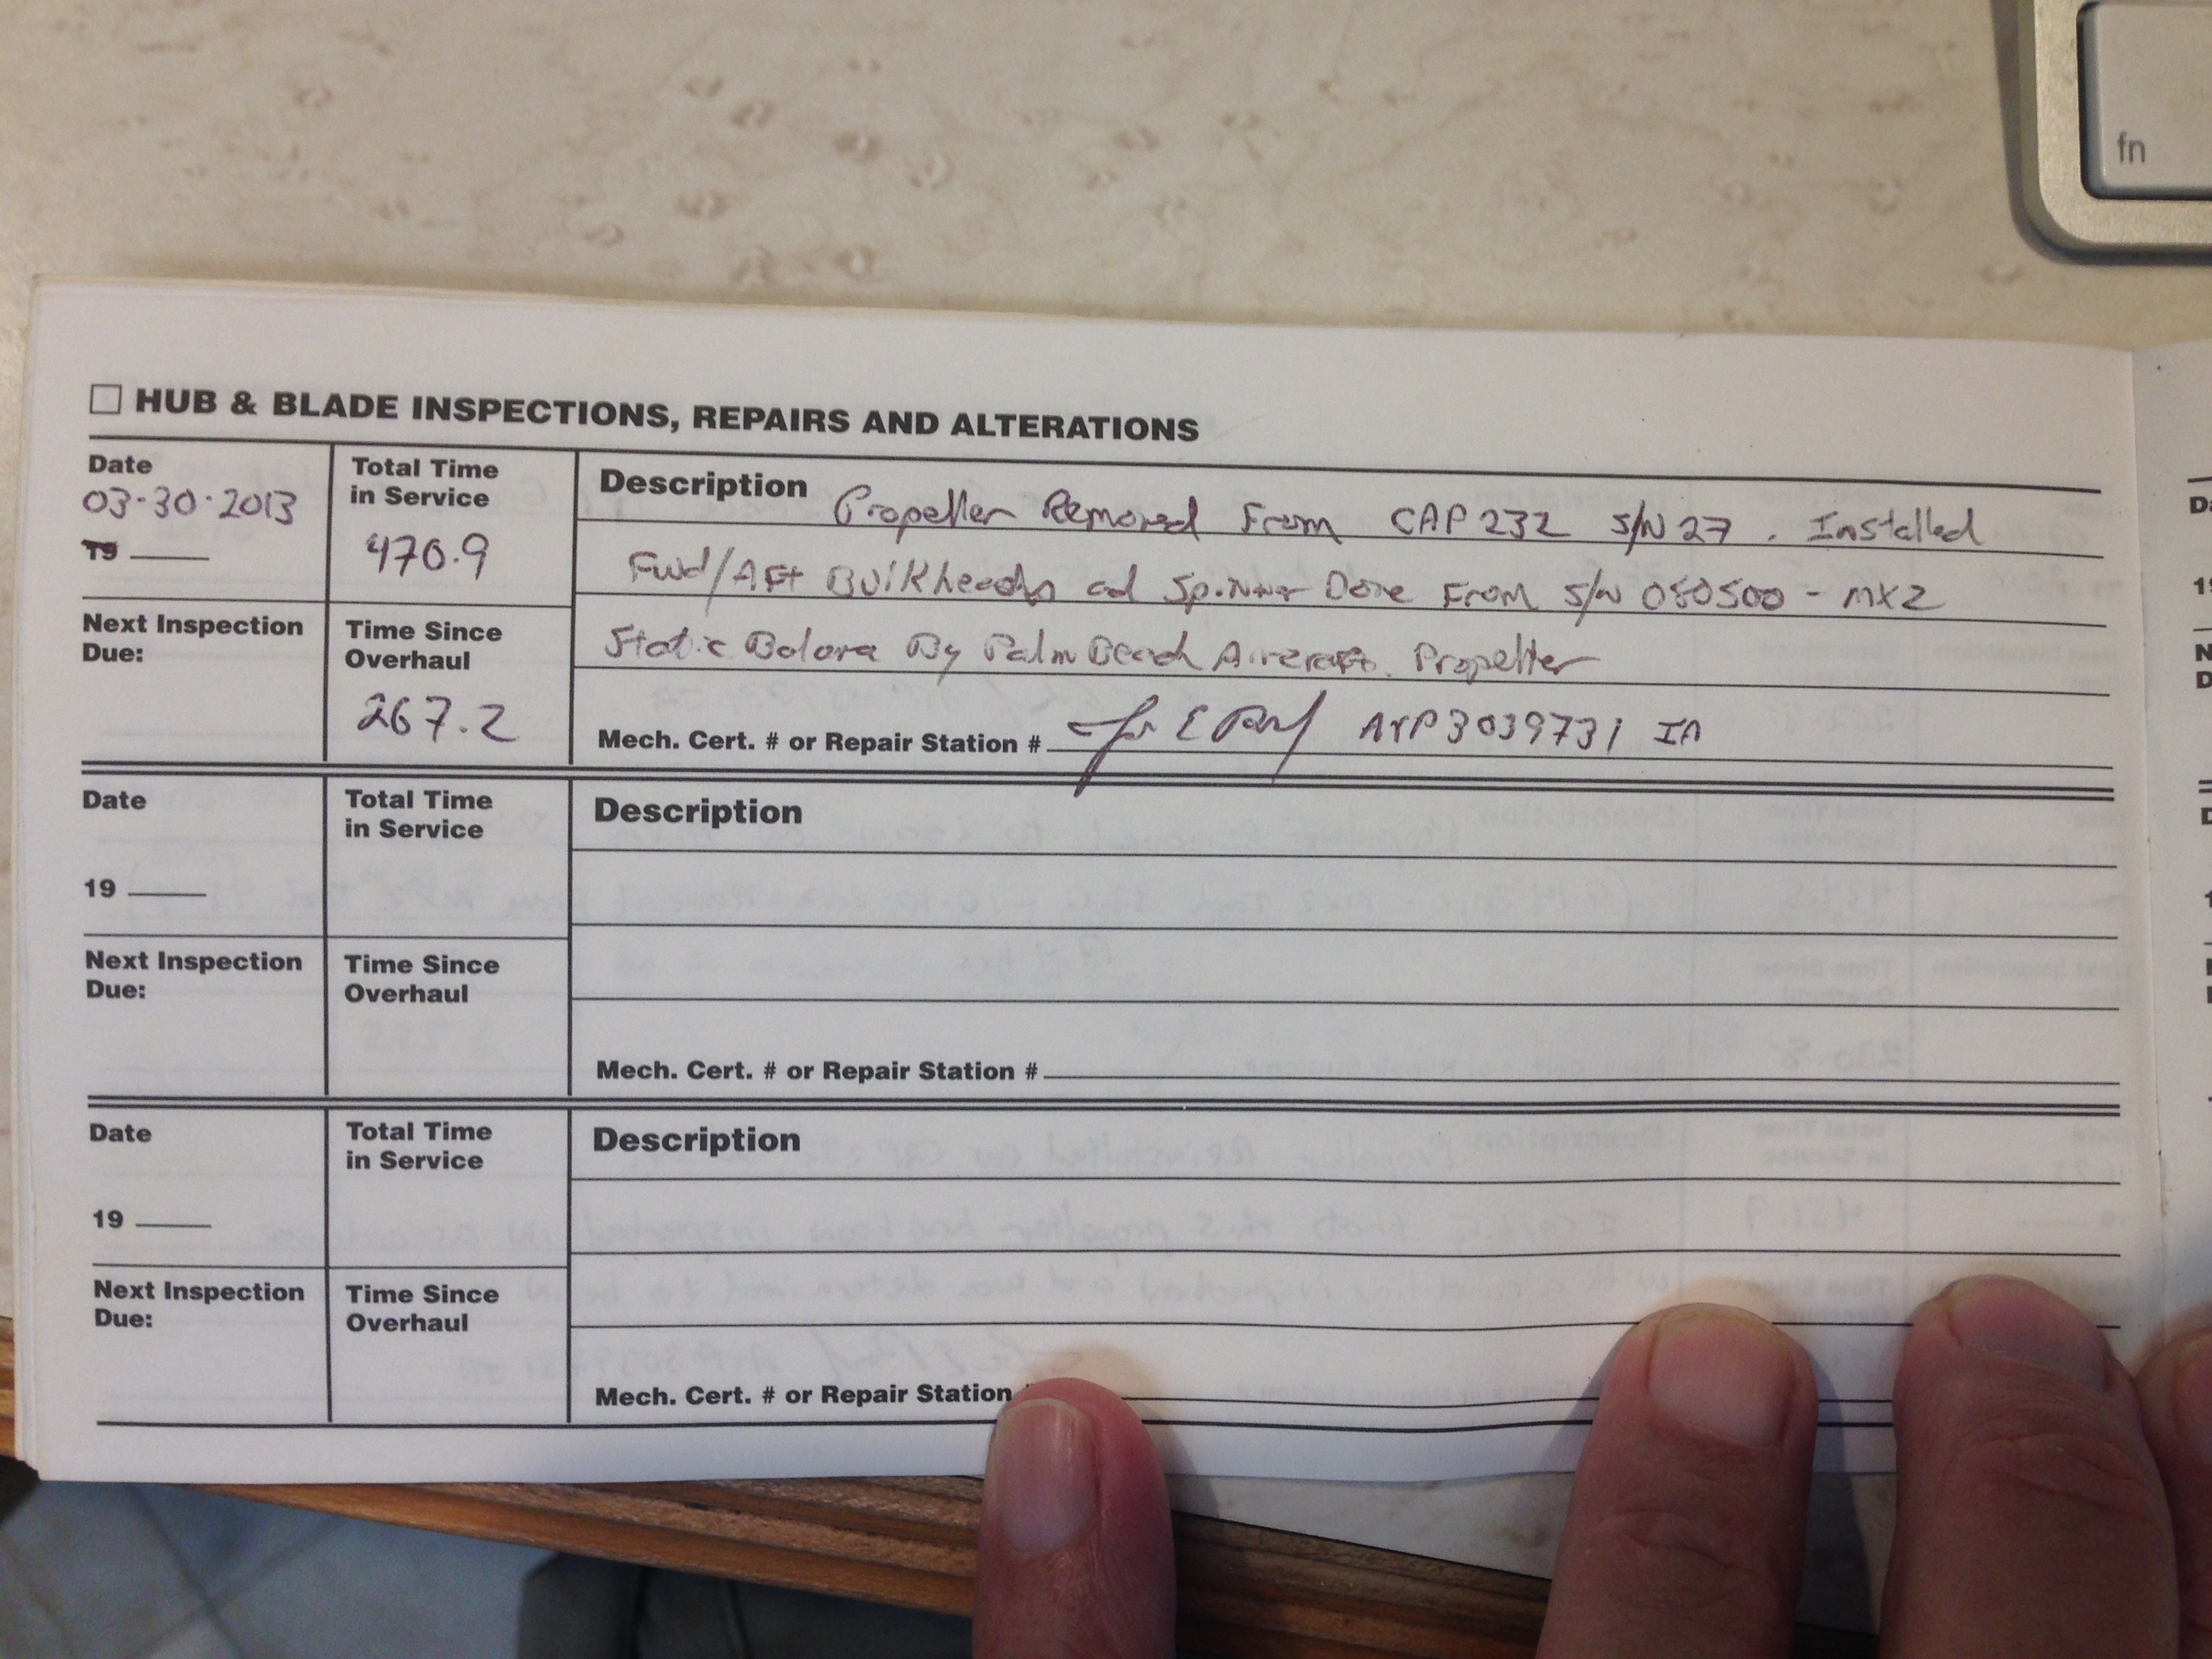 fn
☐ HUB & BLADE INSPECTIONS, REPAIRS AND ALTERATIONS
Date
03-30-2013
19
Total Time
in Service
470.9
Next Inspection
Due:
Time Since
Overhaul
267.2
Description Propeller Removed From CAP 232 S/N 27. Installed
Fwd/Aft Bulkheads ad Spinner Dome From S/N 080500 - MX2
Static Balance By Palm Beach Aircraft Propeller
Mech. Cert. # or Repair Station # A&P 3039731 IA
Date
19
Total Time
in Service
Next Inspection
Due:
Time Since
Overhaul
Description
Mech. Cert. # or Repair Station #
Date
19
Total Time
in Service
Next Inspection
Due:
Time Since
Overhaul
Description
Mech. Cert. # or Repair Station